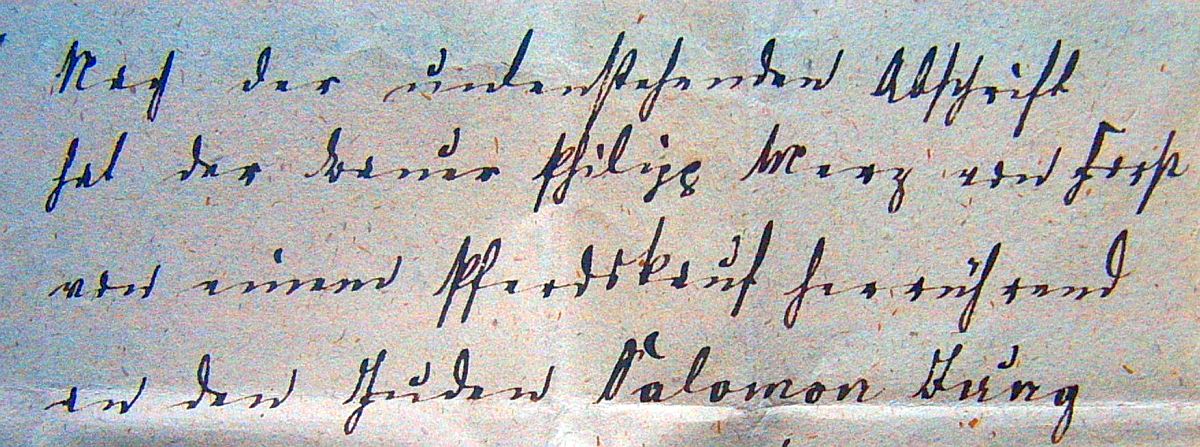 Nach der untenstehenden Abschrift
hat der Bauer Philipp Merz von Forst
von einem Pferdskauf herrührend
an den Juden Salomon Jung